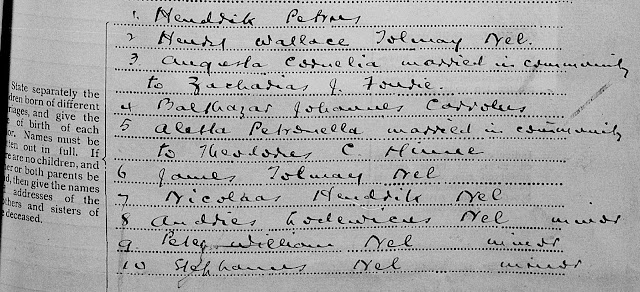 1. Henddik Petrus
2 Hendry Wallace Tolmay Nel.
3 Augusta Cornelia married in community
to Zacharias J. Fourie.
4 Balthazar Johannes Carrolus
5 Aletta Petronella married in community
to Theodores C. Hinne
6 James Tolmay Nel
7 Nicolaas Henddik Nel
8 Andries Lodewicus Nel minor
9 Peter William Nel minor
10 Stephanus Nel minor
State separately the
dren born of different
rages, and give the
of birth of each
or. Names must be
ten out in full. If
re are no children, and
her or both parents be
d, then give the names
addresses of the
thers and sisters of
deceased.